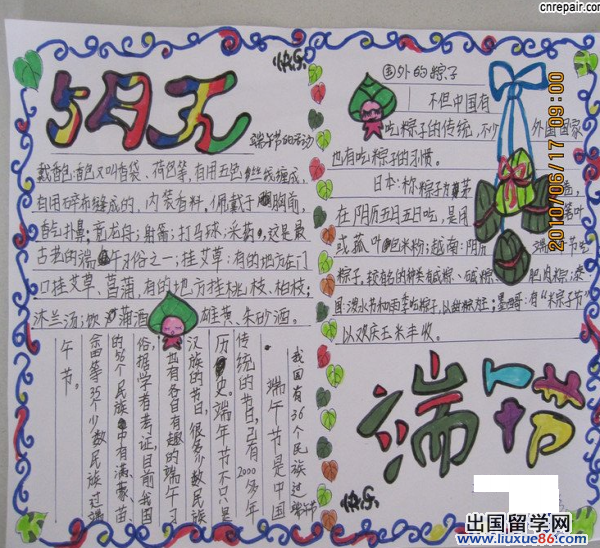 cnrepair.com
快乐
5月五
端午节的活动
戴香包:香包又叫香袋、荷包等,有用五色丝线缠成,
有用碎布缝成的,内装香料。佩戴于胸前,
香气扑鼻;赛龙舟;射
打马球;采药,这是最
古老的端午习俗之一;挂艾草:有的地方在门
口挂艾草、菖蒲,有的地方挂桃枝、柏枝;
沐兰汤;饮蒲酒、雄黄、朱砂酒。
我国有36个民族过端午节
端午节是中国
传统的节日,已有2000多年
历史。端午节不只是
汉族的节日,很多少数民族
也有各自有趣的端午习
俗,据学者考证,目前我国
的56个民族中有满、蒙、苗、
畲等35个少数民族过端
午节。
国外的粽子
不但中国有
吃粽子的传统,不少
外国国家
也有吃粽子的习惯。
日本:称粽子为茅
在阴历五月五日吃,是用
或菰叶包米粉;越南:阴历
端午节吃
粽子,较有名的种类有
碱粽、
肥肉粽;泰
国:泼水节和雨季吃粽子,以甜粽为主;墨西哥:有“米粽子节”
以欢庆玉米丰收。
端午节
快乐
2010/06/17 09:00
出国留学网
www.liuxue86.com